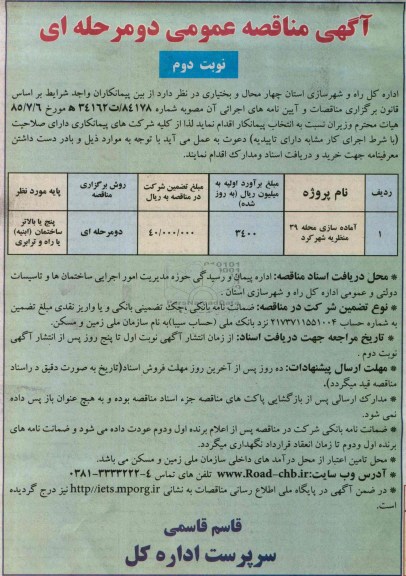 آگهی مناقصه عمومی دومرحله ای
نوبت دوم
اداره کل راه و شهرسازی استان چهار محال و بختیاری در نظر دارد از بین پیمانکاران واجد شرایط بر اساس
قانون برگزاری مناقصات و آیین نامه های اجرائی آن مصوبه شماره ۸۴۱۷۸/ت۳۴۱۶۲ ه مورخ ۸۵/۷/۶
هیات محترم وزیران نسبت به انتخاب پیمانکار اقدام نماید لذا از کلیه شرکت های پیمانکاری دارای صلاحیت
(با شرط اجرای کار مشابه دارای تاییدیه) دعوت به عمل می آید با توجه به موارد ذیل و بادر دست داشتن
معرفینامه جهت خرید و دریافت اسناد ومدارک اقدام نمایند.
ردیف نام پروژه مبلغ برآورد اولیه به میلیون ریال (به روز شده) مبلغ تضمین شرکت در مناقصه به ریال روش برگزاری مناقصه پایه مورد نظر
۱ آماده سازی محله ۳۹ منظریه شهرکرد ۳۴۰۰ ۴۰/۰۰۰/۰۰۰ دومرحله ای پنج یا بالاتر ساختمان (ابنیه) یا راه و ترابری
* محل دریافت اسناد مناقصه: اداره پیمان و رسیدگی حوزه مدیریت امور اجرایی ساختمان ها و تاسیسات
دولتی و عمومی اداره کل راه و شهرسازی استان .
* نوع تضمین شرکت در مناقصه: ضمانت نامه بانکی ،چک تضمینی بانکی و یا واریز نقدی مبلغ تضمین
به شماره حساب ۲۱۷۳۷۱۱۵۵۱۰۰۴ نزد بانک ملی (حساب سیبا)به نام سازمان ملی زمین و مسکن.
* تاریخ مراجعه جهت دریافت اسناد: از زمان انتشار آگهی نوبت اول تا پنج روز پس از انتشار آگهی
نوبت دوم .
* مهلت ارسال پیشنهادات: ده روز پس از آخرین روز مهلت فروش اسناد(تاریخ به صورت دقیق د راسناد
مناقصه قید میگردد).
* مدارک ارسالی پس از بازگشایی پاکت های مناقصه جزء اسناد مناقصه بوده و به هیچ عنوان باز پس داده
نمی شود.
* ضمانت نامه بانکی شرکت در مناقصه پس از اعلام برنده اول ودوم عودت داده می شود و ضمانت نامه های
برنده اول ودوم تا زمان انعقاد قرارداد نگهداری میگردد.
* محل تامین اعتبار از محل درآمد های داخلی سازمان ملی زمین و مسکن می باشد.
* آدرس وب سایت:www.Road-chb.ir تلفن های تماس ۴-۳۳۳۳۲۲۲-۰۳۸۱
* در ضمن آگهی در پایگاه ملی اطلاع رسانی مناقصات به نشانی http//iets.mporg.ir نیز درج گردیده
است.
قاسم قاسمی
سرپرست اداره کل